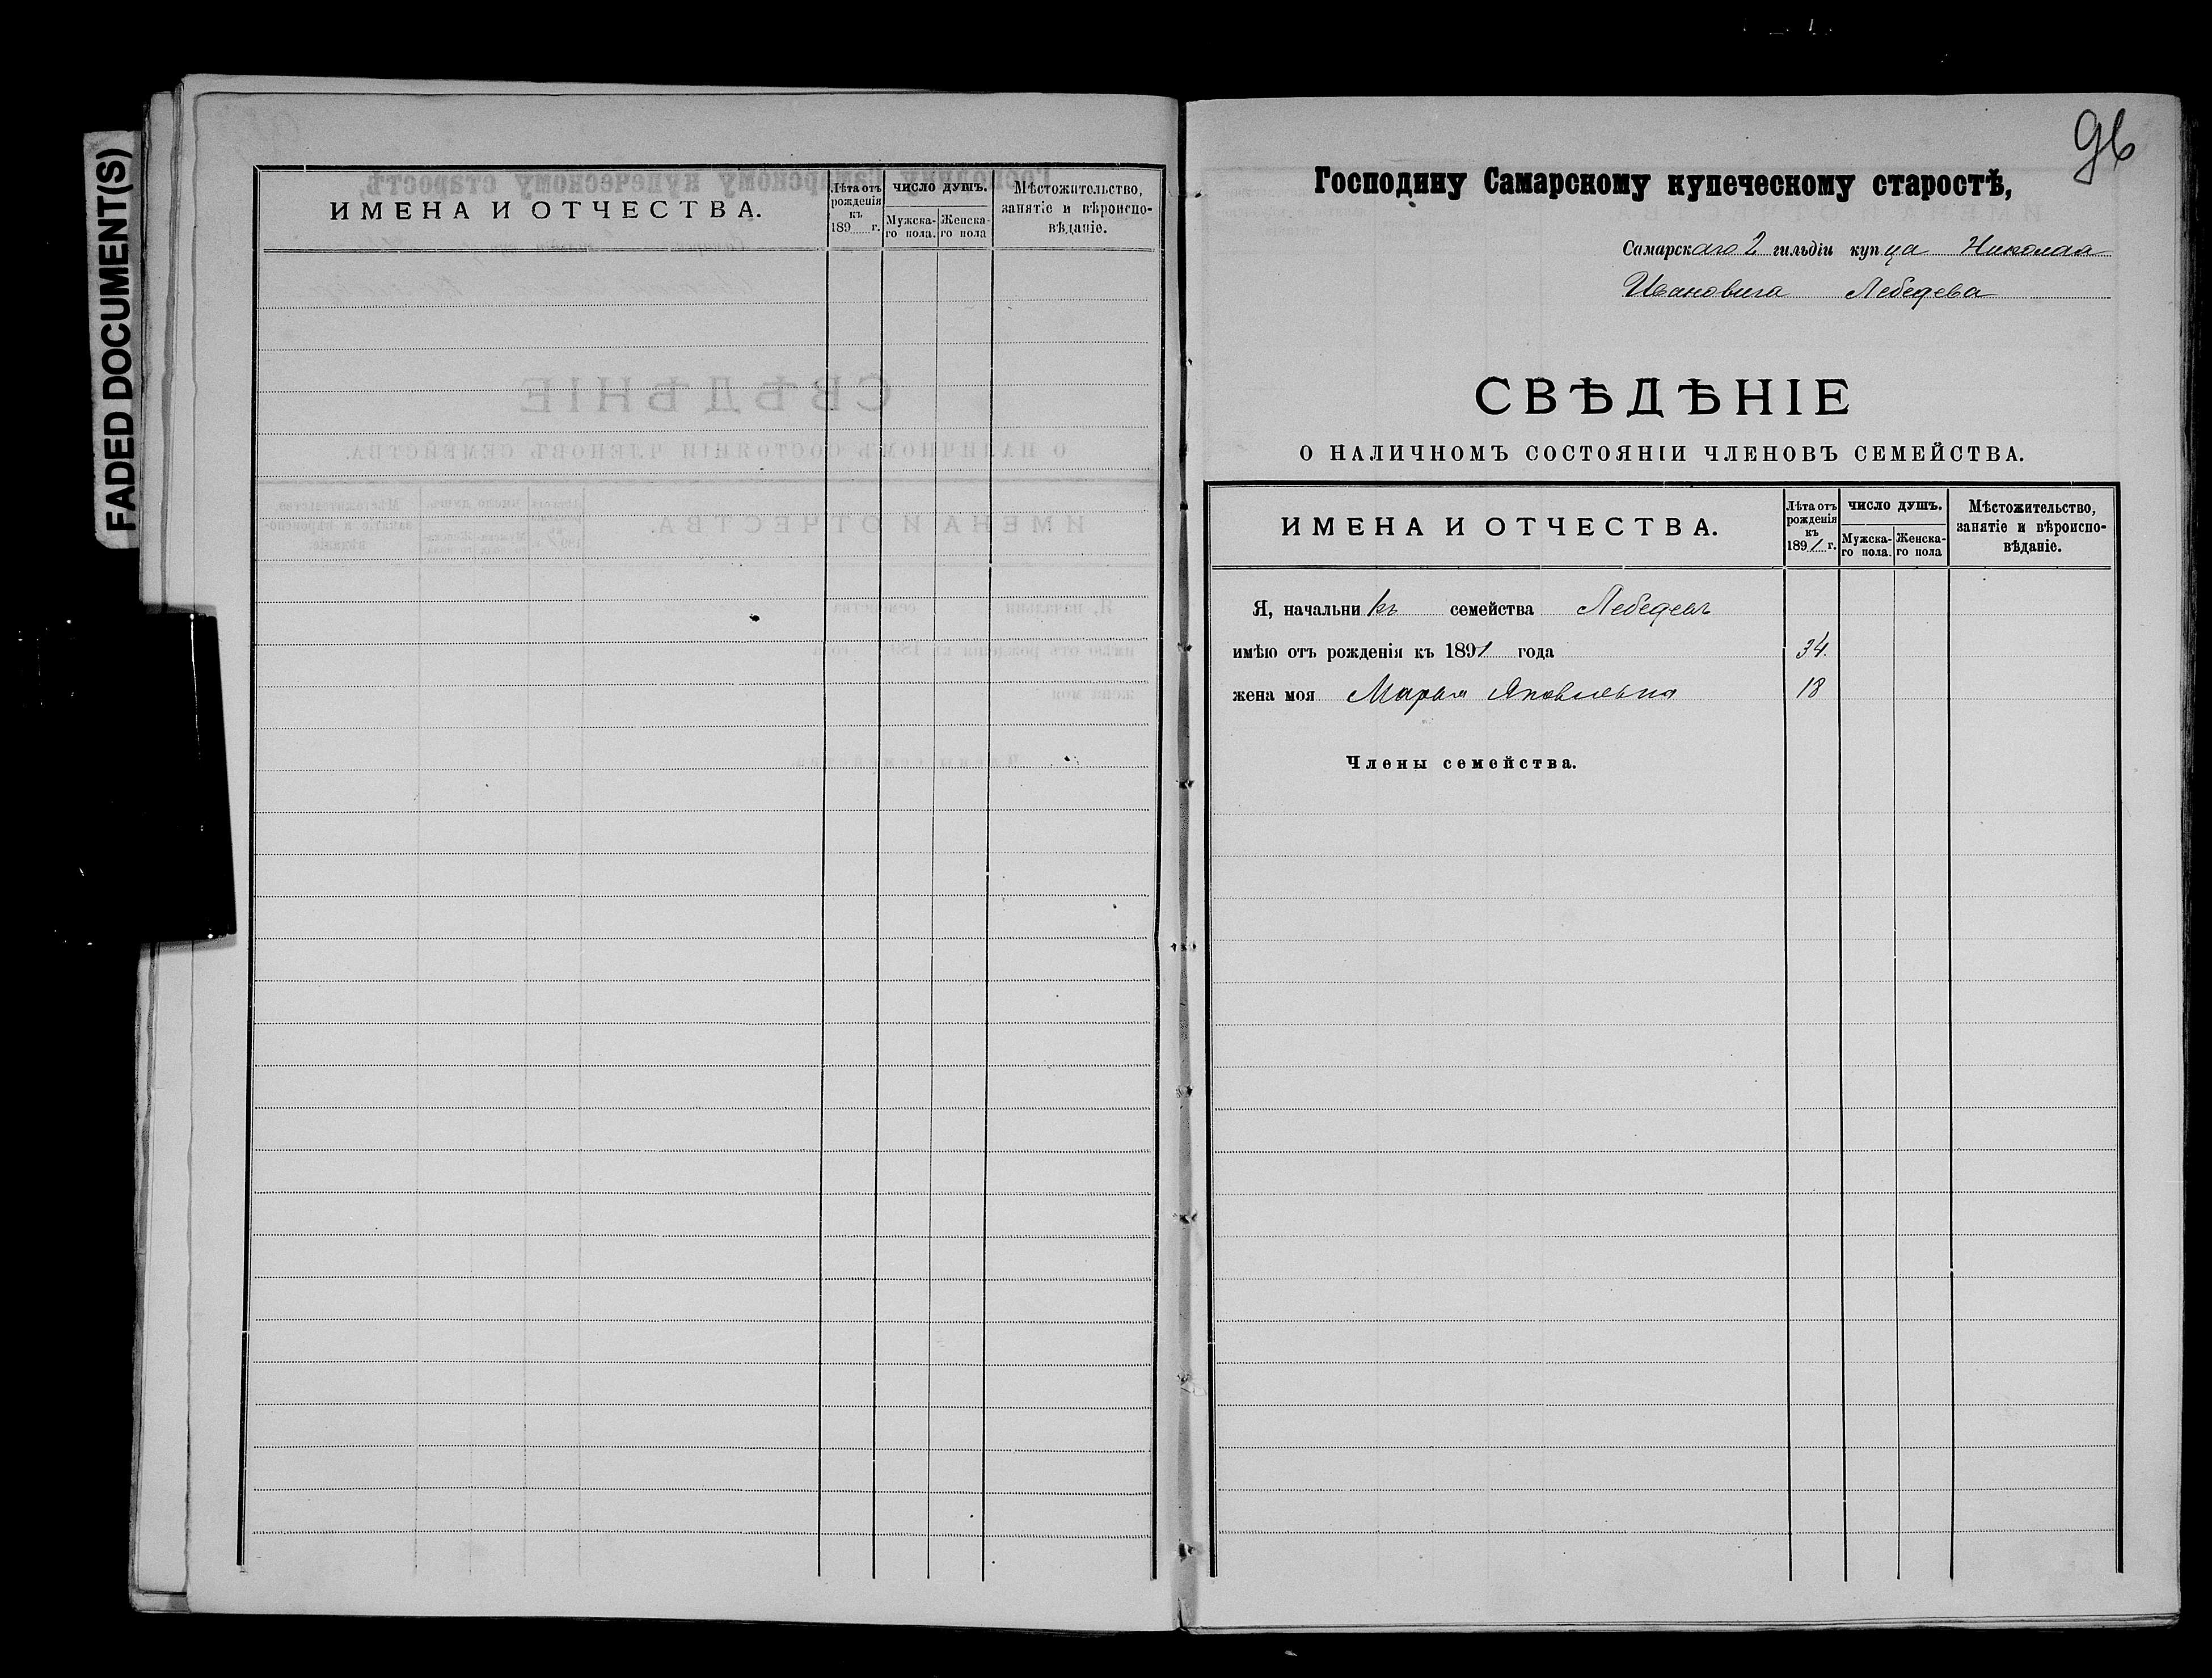 FADED DOCUMENT(S)
ИМЕНА И ОТЧЕСТВА.
Лѣта отъ рожденія къ 189 г.
ЧИСЛО ДУШЪ.
Мужска-го пола.
Женска-го пола
Мѣстожительство, занятіе и вѣроиспо-вѣданіе.
96
Господину Самарскому купеческому старостѣ,
Самарскаго 2 гильдіи купца Николая
Ивановича Лебедева
СВѢДѢНІЕ
О НАЛИЧНОМЪ СОСТОЯНІИ ЧЛЕНОВЪ СЕМЕЙСТВА.
ИМЕНА И ОТЧЕСТВА.
Лѣта отъ рожденія къ 1891 г.
ЧИСЛО ДУШЪ.
Мужска-го пола.
Женска-го пола
Мѣстожительство, занятіе и вѣроиспо-вѣданіе.
Я, начальникъ семейства Лебедевъ
имѣю отъ рожденія къ 1891 года 34.
жена моя Марья Яковлевна 18
Члены семейства.